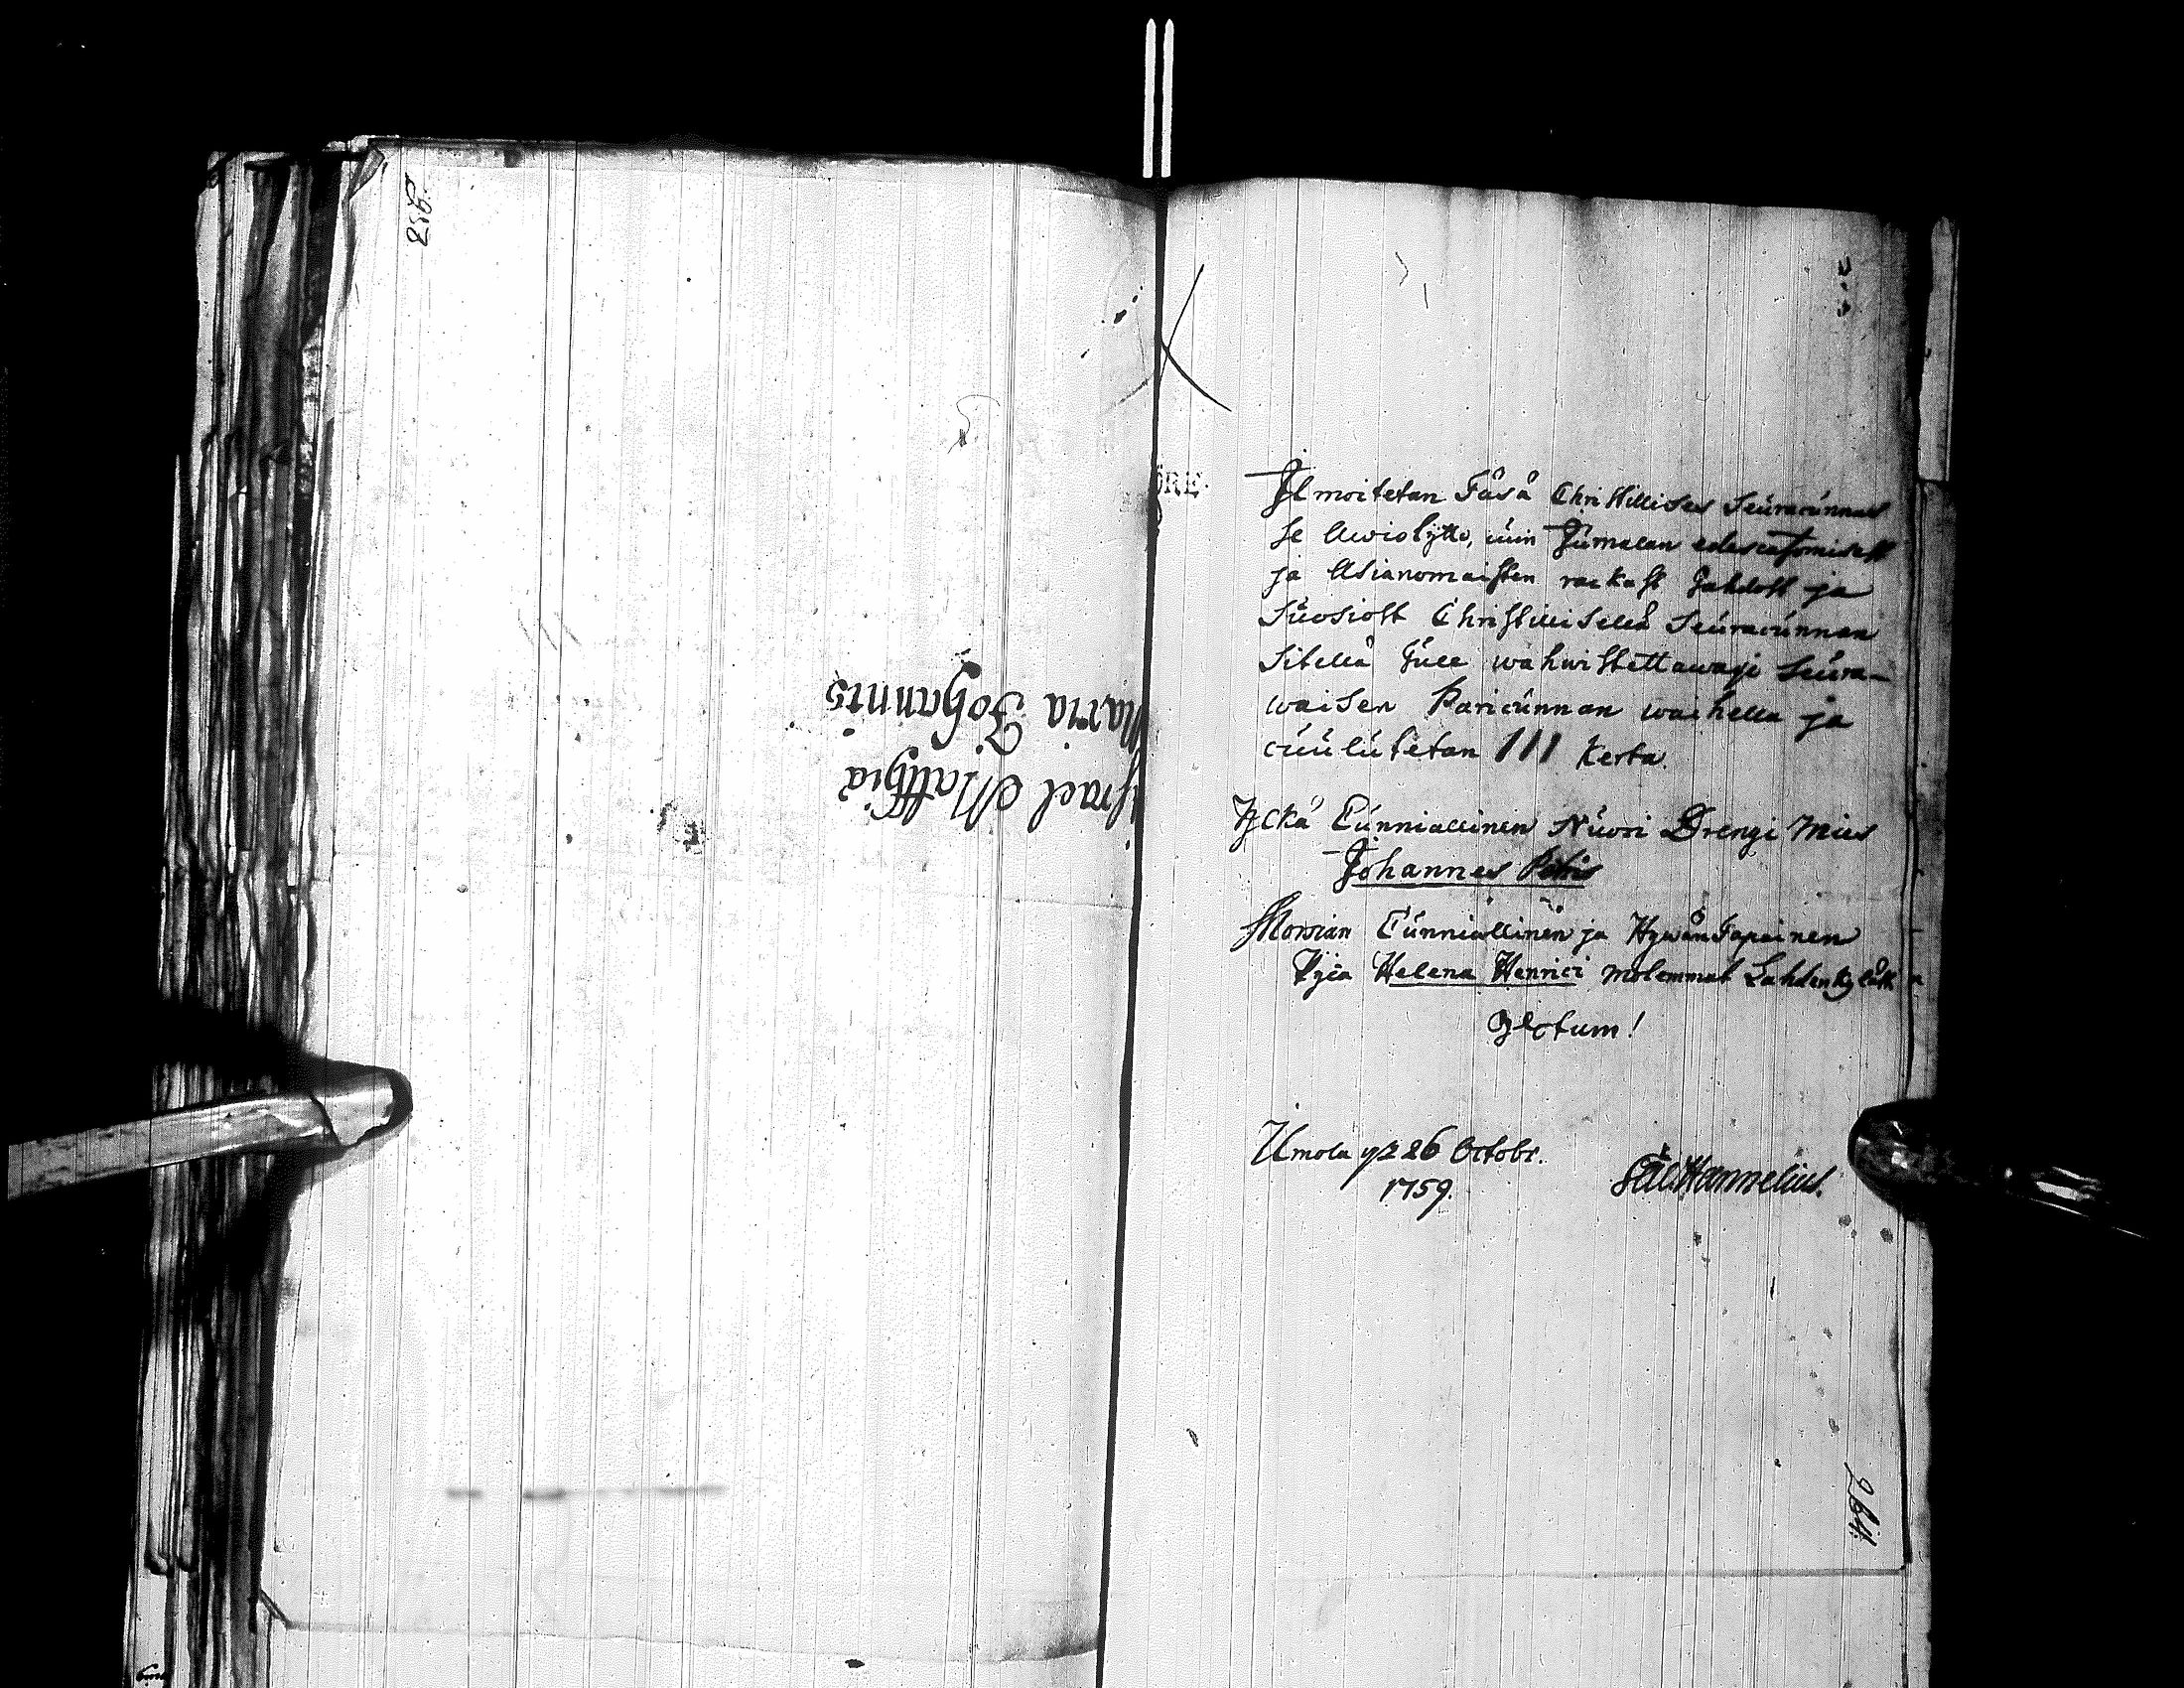 253.
Israel Matthiæ
Maria Johannis
Ilmoitetan Täsä Christillises Seuracunnas
se Awiolijtto, cuin Jumalan edescatzomisest
ja Asianomaisten rackast Tahdost ja
Suosiost Christillisellä Seuracunnan
Sitellä Tule wahwistettawaxi Seura-
waisen Paricunnan waihella ja
cuulutetan III Kerta.
Ylkä Cunniallinen Nuori Drengi Mies
Johannes Petri
Morsian Cunniallinen ja Hywän Tapainen
Pyca Helena Henrici molemmat Lahdenkyläst
Notum!
Umola 26 Octobr.
1759.
Hannelius.
264.